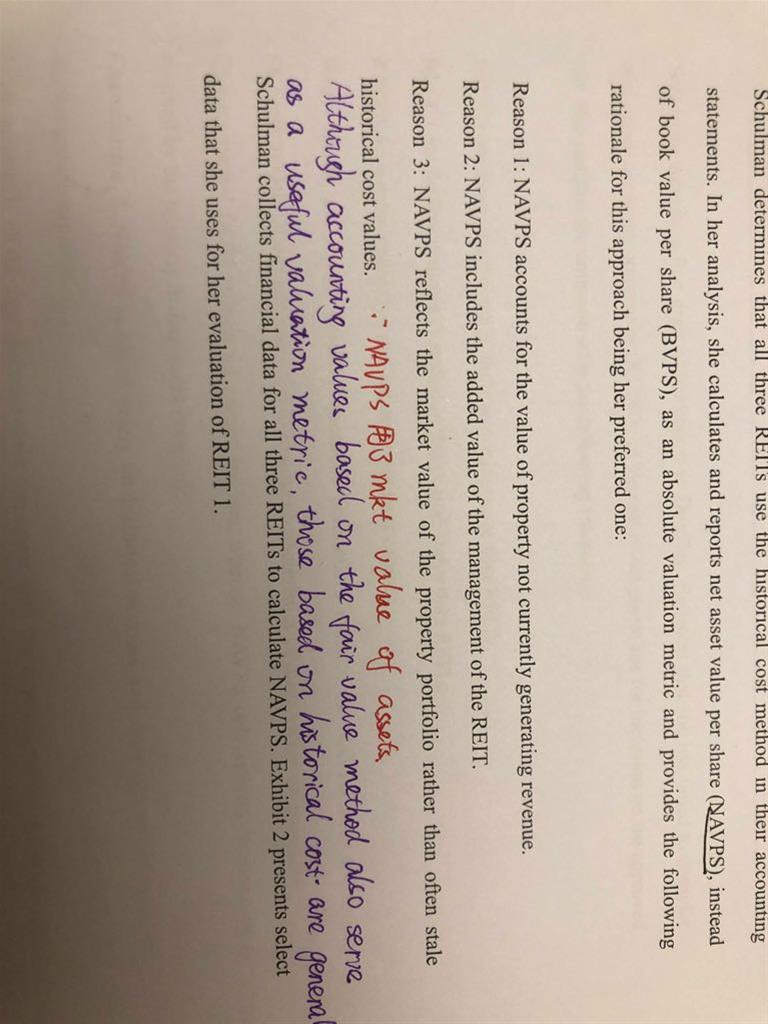 Schulman determines that all three REITs use the historical cost method in their accounting
statements. In her analysis, she calculates and reports net asset value per share (NAVPS), instead
of book value per share (BVPS), as an absolute valuation metric and provides the following
rationale for this approach being her preferred one:
Reason 1: NAVPS accounts for the value of property not currently generating revenue.
Reason 2: NAVPS includes the added value of the management of the REIT.
Reason 3: NAVPS reflects the market value of the property portfolio rather than often stale
historical cost values. ∵ NAVPS 用了 mkt value of assets,
Although accounting values based on the fair value method also serve
as a useful valuation metric, those based on historical cost are general
Schulman collects financial data for all three REITs to calculate NAVPS. Exhibit 2 presents select
data that she uses for her evaluation of REIT 1.